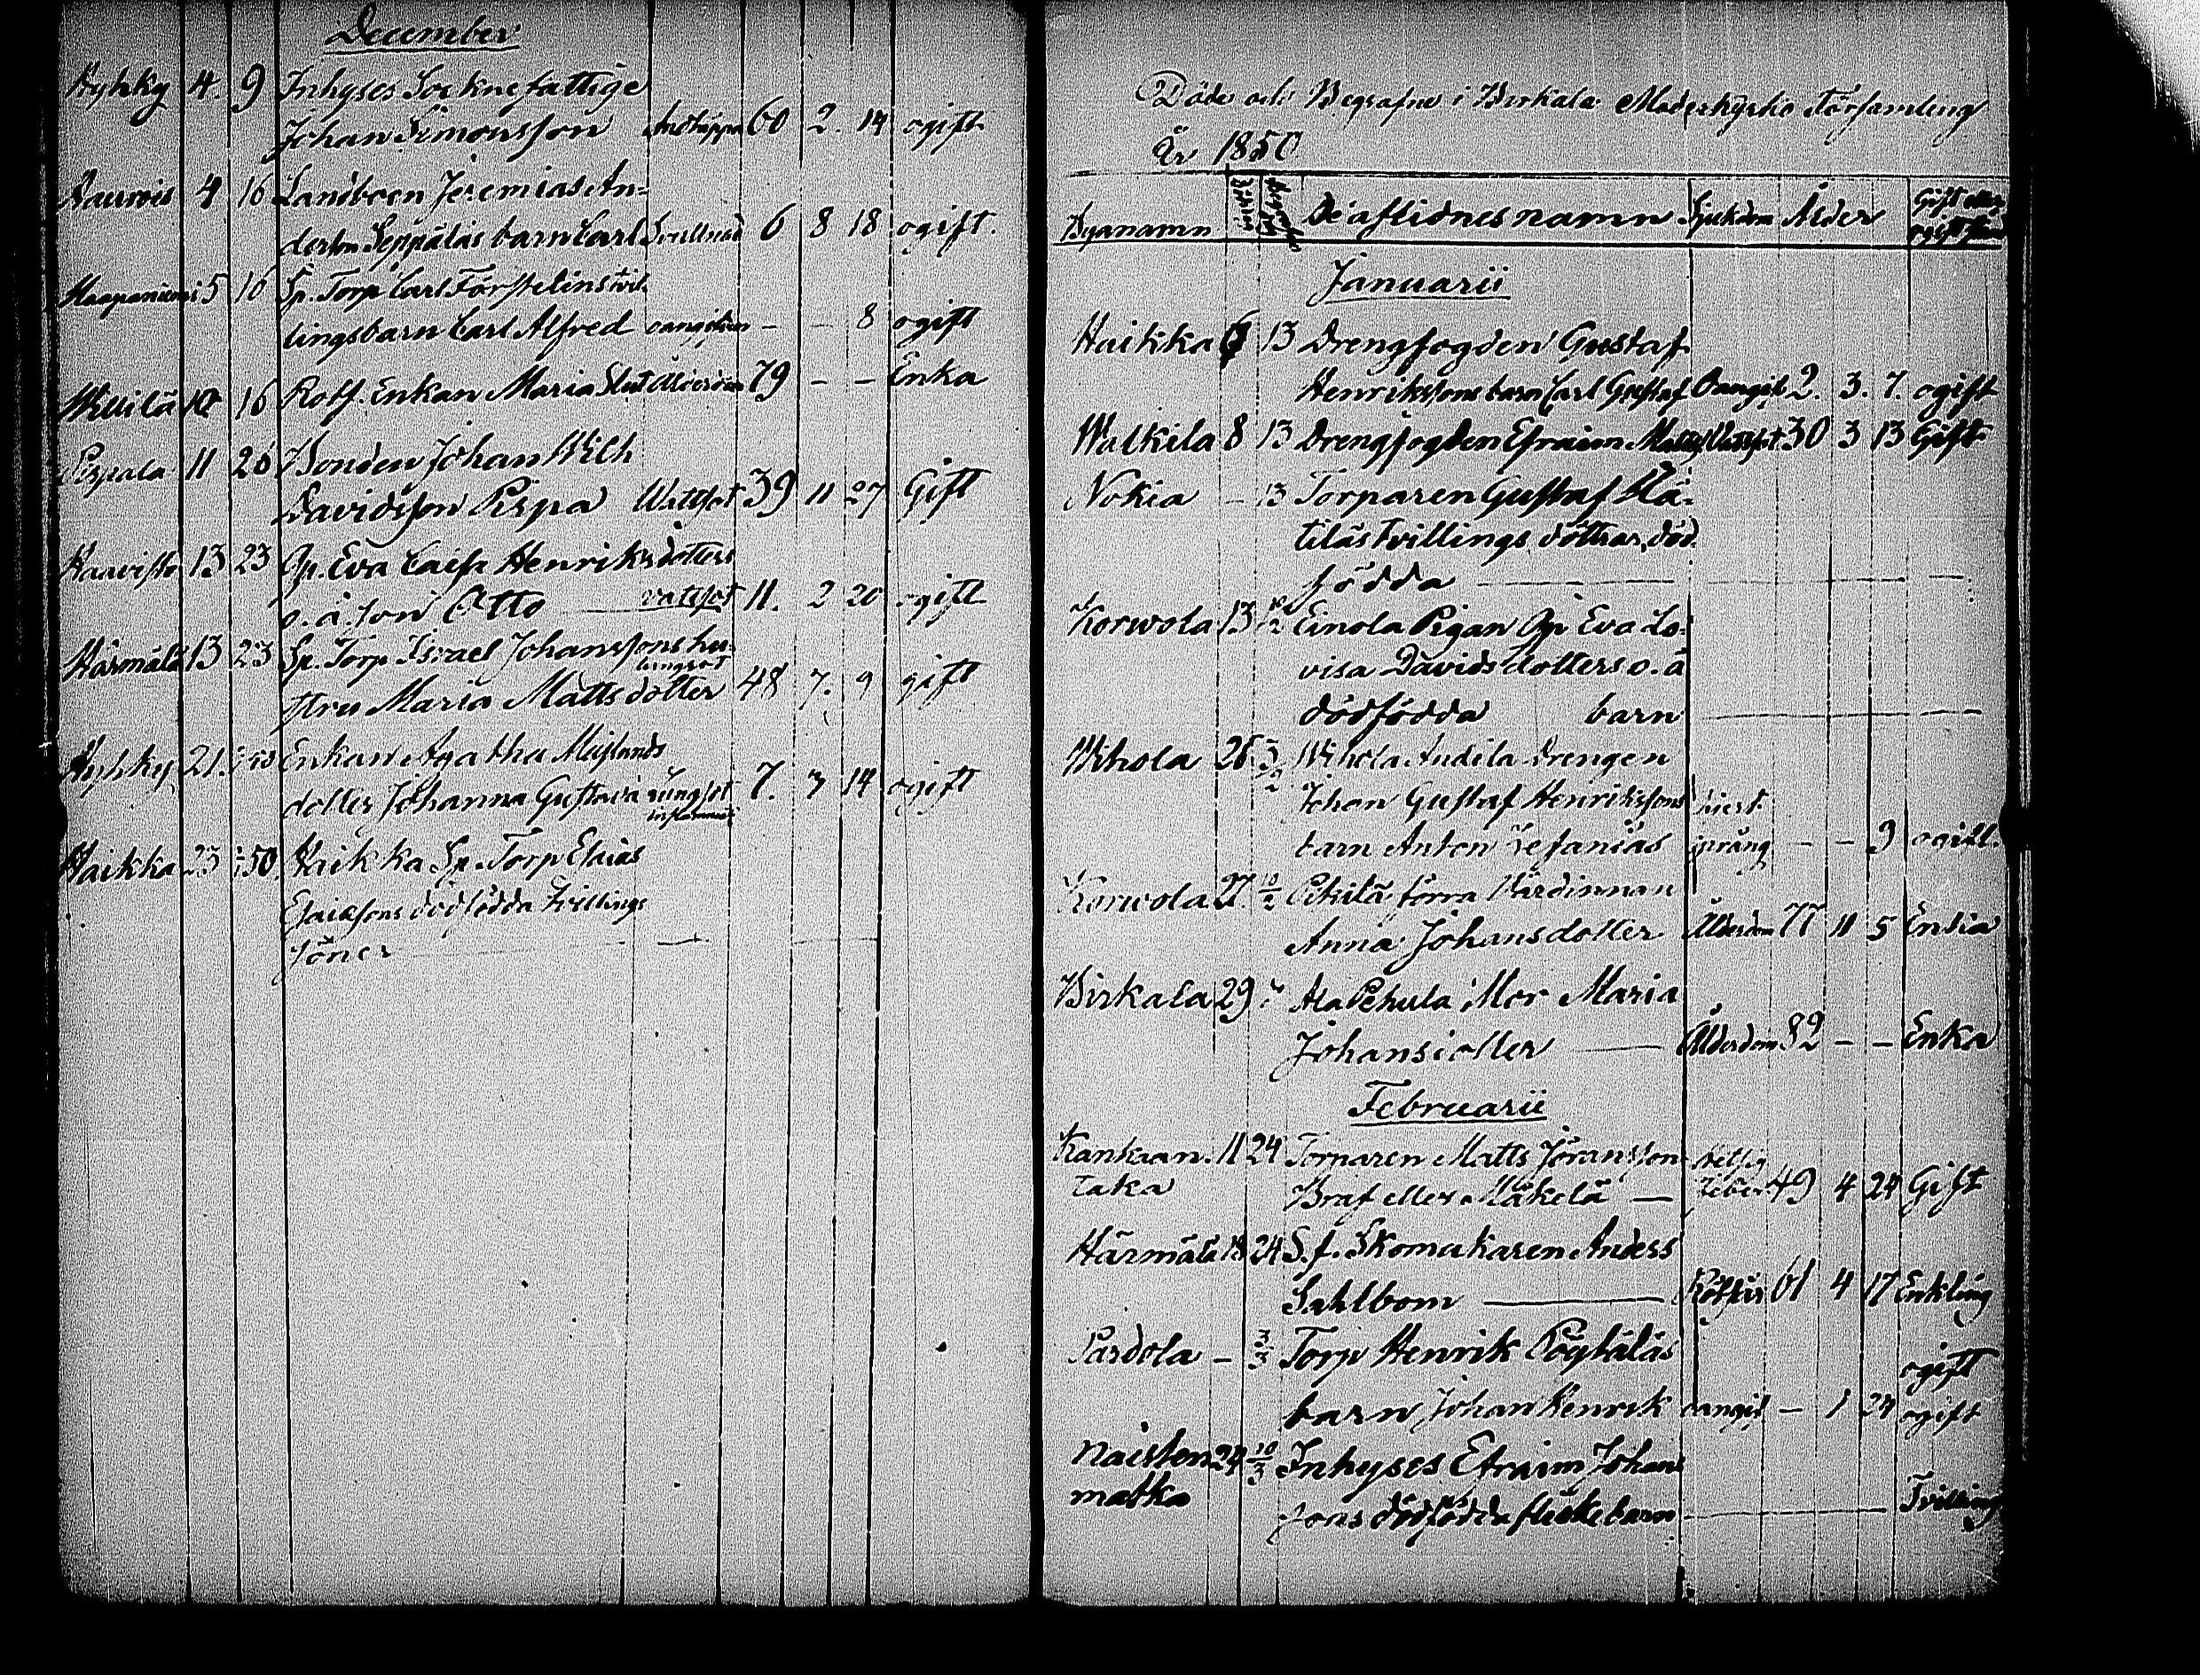 December
Hyhky 4. 9 Inhyses Socknefattige
Johan Simonsson Andtäppa 60 2. 14 ogift
4 16 Landboen Jeremias An-
dersson Seppäläs barn Carl Svullnad 6 8 18 ogift.
Haapaniemi 5 16 Sp. Torp Carl Forsselins tvil-
lingsbarn Carl Alfred oangifven - - 8 ogift
Willilä 10 16 Rotf. Enkan Maria Ålderdom 79 - - Enka
Pispala 11 26 Bonden Johan Wilh
Davidsson Pispa Wattsot 39 11 27 Gift
Kaavisto 13 23 Gp. Eva Caisa Henriksdotters
o. ä. son Otto vattsot 11. 2 20 ogift
Härmälä 13 23 Sp. Torp Israel Johanssons hu-
stru Maria Mattsdotter lungsot 48 7. 9 gift
Hyhky 21. Enkan Agatha
dotter Johanna Gustava lungsot 7. 3 14 ogift
inflammat
Haikka 23 Haikka Sp. Torp Esaias
Esaiasons dödfödda tvillings
söner
Döde och Begrafne i Birkala Moderkyrko Församling
År 1850
Byanamn De aflidnes namn Sjukdom Ålder Gift eller
ogift
Januarii
Haikka 6 13 Drengfogden Gustaf
Henrikssons barn Carl Gustaf Oangif 2. 3. 7. ogift
Walkila 8 13 Drengfogden Efraim Matts Vattsot 30 3 13 Gift
Nokia - 13 Torparen Gustaf Hä-
tiläs tvillings döttrar, död
födda
Korwola 13 10/2 Einola Pigan Gp Eva Lo-
visa Davidsdotters o. ä
dödfödda barn
Wihola 26 3/2 Wihola Andila Drengen
Johan Gustaf Henrikssons hiert
barn Anton Zefanias språng - - 9 ogift.
Korwola 27. 10/2 Pitkilä förra Värdinnan
Anna Johansdotter Ålderdom 77 11 5 Enka
Birkala 29 Ala Pehula Mor Maria
Johansdotter Ålderdom 82 - - Enka
Februarii
Kankaan- 11 24 Torparen Matts Jöransson Hetsig
taka Braf eller Mäkelä feber 49 4 24 Gift
Härmälä 18 24 S.f. Skomakaren Anders
Sahlbom Rötfeb 61 4 17 Enkling
Pardola - 3/3 Torp Henrik Pöyhöläs
ogift
barn Johan Henrik oangif - 1 24 ogift
Naisten 24 10/3 Inhyses Efraim Johans
matka sons dödfödda flickebarn Tvilling